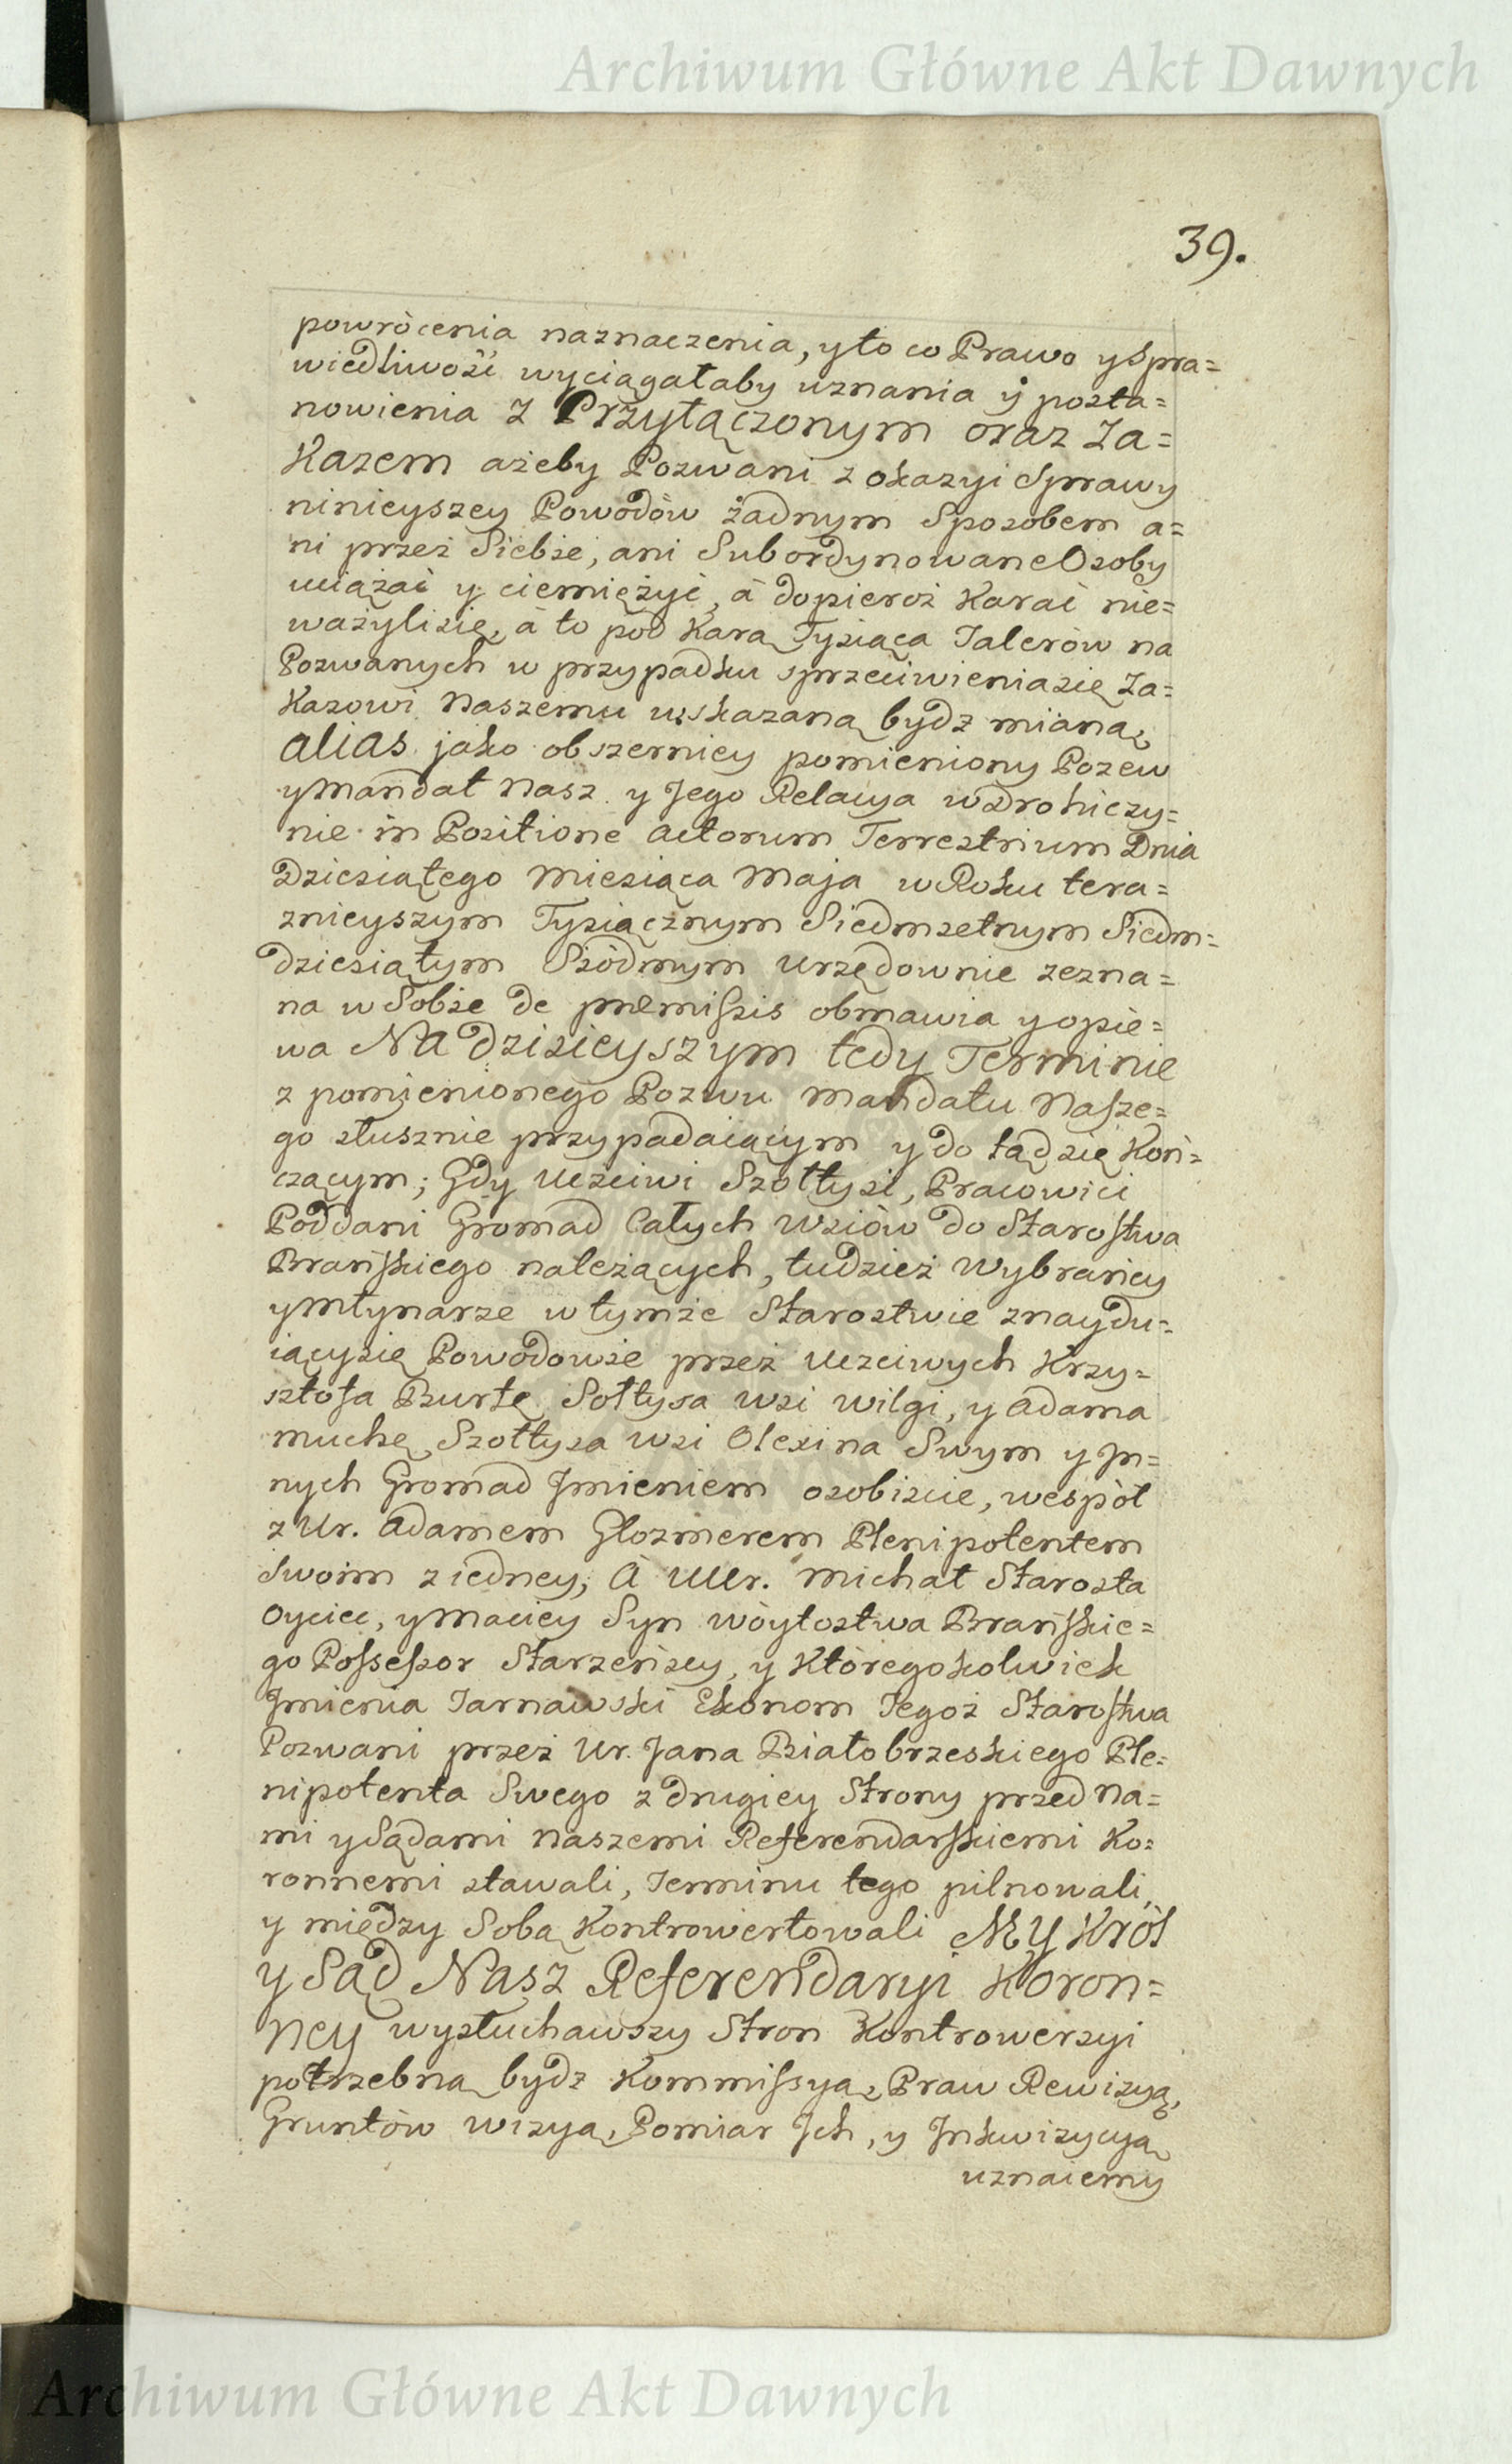 Archiwum Główne Akt Dawnych
39.
powròcenia naznaczenia, y to co Prawo y Spra=
wiedliwość wyciągałaby uznania ÿ posta=
nowienia z Przyłączonym oraz Za=
kazem ażeby Pozwani z okazyi Sprawy
ninieyszey Powodów żadnym Sposobem a=
ni przez Siebie, ani Subordynowane Osoby
uciążać y ciemiężyć, à dopieroż Karać nie=
ważyli się, à to pod Karą Tysiąca Talerów na
Pozwanych w przypadku sprzeciwienia się Za=
kazowi Naszemu wskazaną bydz mianą,
alias jako obszerniey pomieniony Pozew
y Mandat Nasz y Jego Relacya w Drohiczy=
nie in Positione Actorum Terrestrium Dnia
Dziesiątego Miesiąca Maja w Roku tera=
znieyszym Tysiącznym Siedmsetnym Siedm=
dziesiątym Siódmym urzędownie zezna=
na w Sobie de præmissis obmawia y opie=
wa Na dzisieyszym tedy Terminie
z pomienionego Pozwu Mandatu Nasze=
go słusznie przypadaiącym y do tąd się Koń=
czącym; Gdy Uczciwi Szołtysi, Pracowici
Poddani Gromad Całych Wsiów do Starostwa
Brańskiego należących, tudzież Wybrańcy
y Młynarze w tymże Starostwie znaydu=
iący się Powodowie przez Uczciwych Krzy=
sztofa Burtę Sołtysa wsi Wilgi, y Adama
Muchę Szołtysa wsi Olexina Swym y In=
nych Gromad Imieniem osobiście, wespół
z Ur. Adamem Glozmerem Plenipotentem
Swoim z iedney; A UUr. Michał Starosta
Oyciec, y Maciey Syn Wòytostwa Brańskie=
go Possessor Starzeńscy, y Któregokolwiek
Imienia Tarnawski Ekonom Tegoż Starostwa
Pozwani przez Ur. Jana Białobrzeskiego Ple=
nipotenta Swego z drugiey Strony przed Na=
mi y Sądami Naszemi Referendarskiemi Ko=
ronnemi stawali, Terminu tego pilnowali,
y między Sobą Kontrowertowali My Król
y Sąd Nasz Referendaryi Koron=
ney wysłuchawszy Stron Kontrowersyi
potrzebną bydz Kommissyą, Praw Rewizyą,
Gruntów wizyą, Pomiar Ich, y Inkwizycyą
uznaiemy
Archiwum Główne Akt Dawnych